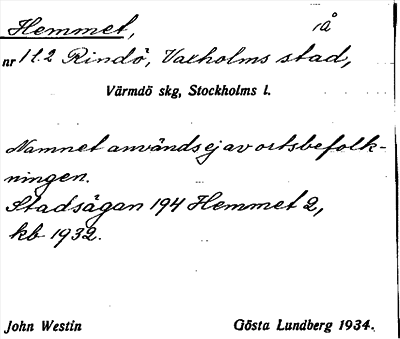 Hemmet, iå
nr 1 t. 2 Rindö, Vaxholms stad,
Värmdö skg, Stockholms l.
Namnet användes ej av ortsbefolk-
ningen.
Stadsägan 194 Hemmet 2,
kb 1932.
John Westin Gösta Lundberg 1934.